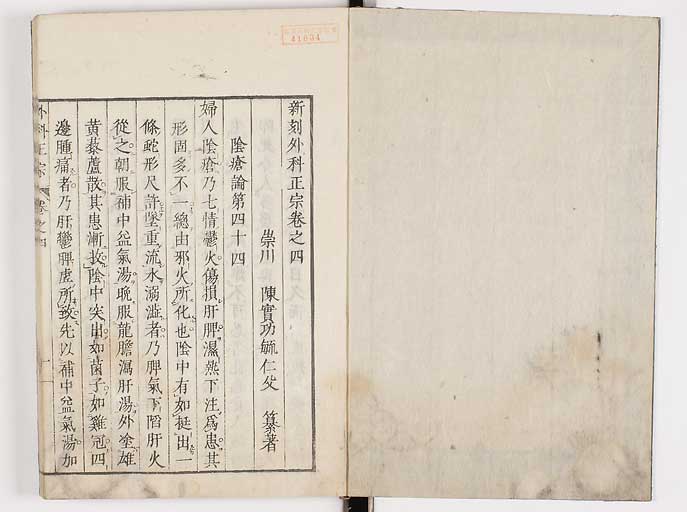 新刻外科正宗卷之四
崇川 陳實功毓仁父 纂著
陰瘡論第四十四
婦人陰瘡乃七情鬱火傷損肝脾濕熱下注爲患其
形固多不一總由邪火所化也陰中有如挺出一
條蛇形尺許墜重流水溺澁者乃脾氣下陷肝火
從之朝服補中益氣湯晚服龍膽瀉肝湯外塗雄
黃藜蘆散其患漸收陰中突出如菌子如雞冠四
邊腫痛者乃肝鬱脾虛所致先以補中益氣湯加
外科正宗 卷之四
41604